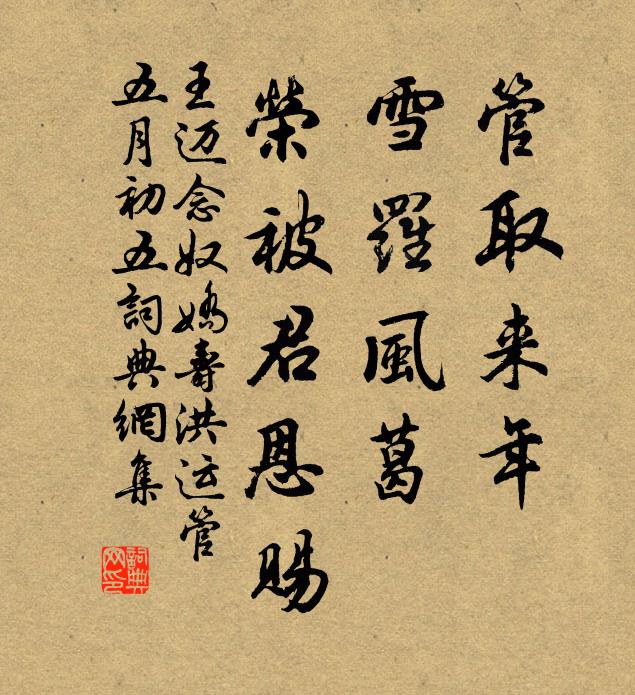 管取来年
雪羅風葛
榮被君恩賜
王迈念奴娇壽洪运管
五月初五詞典網集
詞典
网印